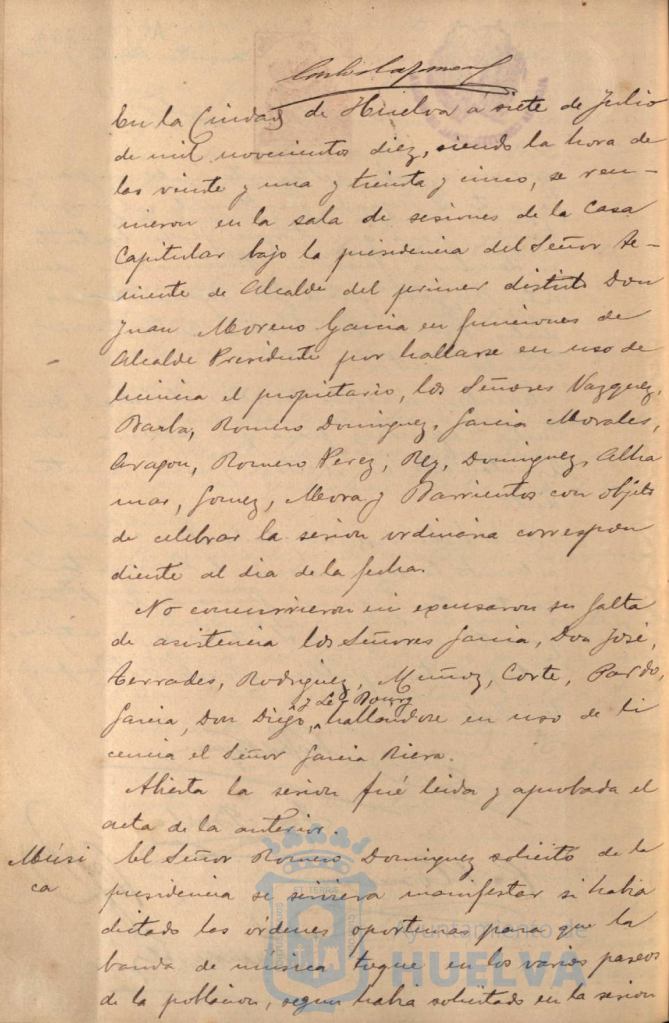 En la Ciudad de Huelva a siete de Julio
de mil novecientos diez, siendo la hora de
las veinte y una y treinta y cinco, se reu-
nieron en la sala de sesiones de la Casa
Capitular bajo la presidencia del Señor Te-
niente de Alcalde del primer distrito Don
Juan Moreno Garcia en funciones de
Alcalde Presidente por hallarse en uso de
licencia el propietario, los Señores Vazquez,
Barba, Romero Dominguez, Garcia Morales,
Aragon, Romero Perez, Rey, Dominguez, Alha
mar, Gomez, Mora y Barrientos con objeto
de celebrar la sesion ordinaria correspon
diente al dia de la fecha.
No concurrieron ni excusaron su falta
de asistencia los Señores Garcia, Don José,
Terrades, Rodriguez, Muñoz, Corte, Pardo,
y Le Bourg
Garcia, Don Diego, hallandose en uso de li
cencia el Señor Garcia Riera.
Abierta la sesion fué leida y aprobada el
acta de la anterior.
Músi
ca
El Señor Romero Dominguez solicitó de la
presidencia se sirviera manifestar si habia
dictado las órdenes oportunas para que la
banda de música toque en los varios paseos
de la poblacion, segun habia solicitado en la sesion
Ayuntamiento de
HUELVA